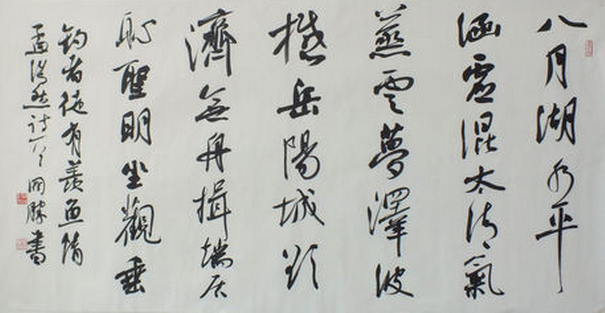 八月湖水平
涵虛混太清氣
蒸雲夢澤波
撼岳陽城欲
濟無舟楫端居
恥聖明坐觀垂
釣者徒有羨魚情
孟浩然詩一首 國勝書